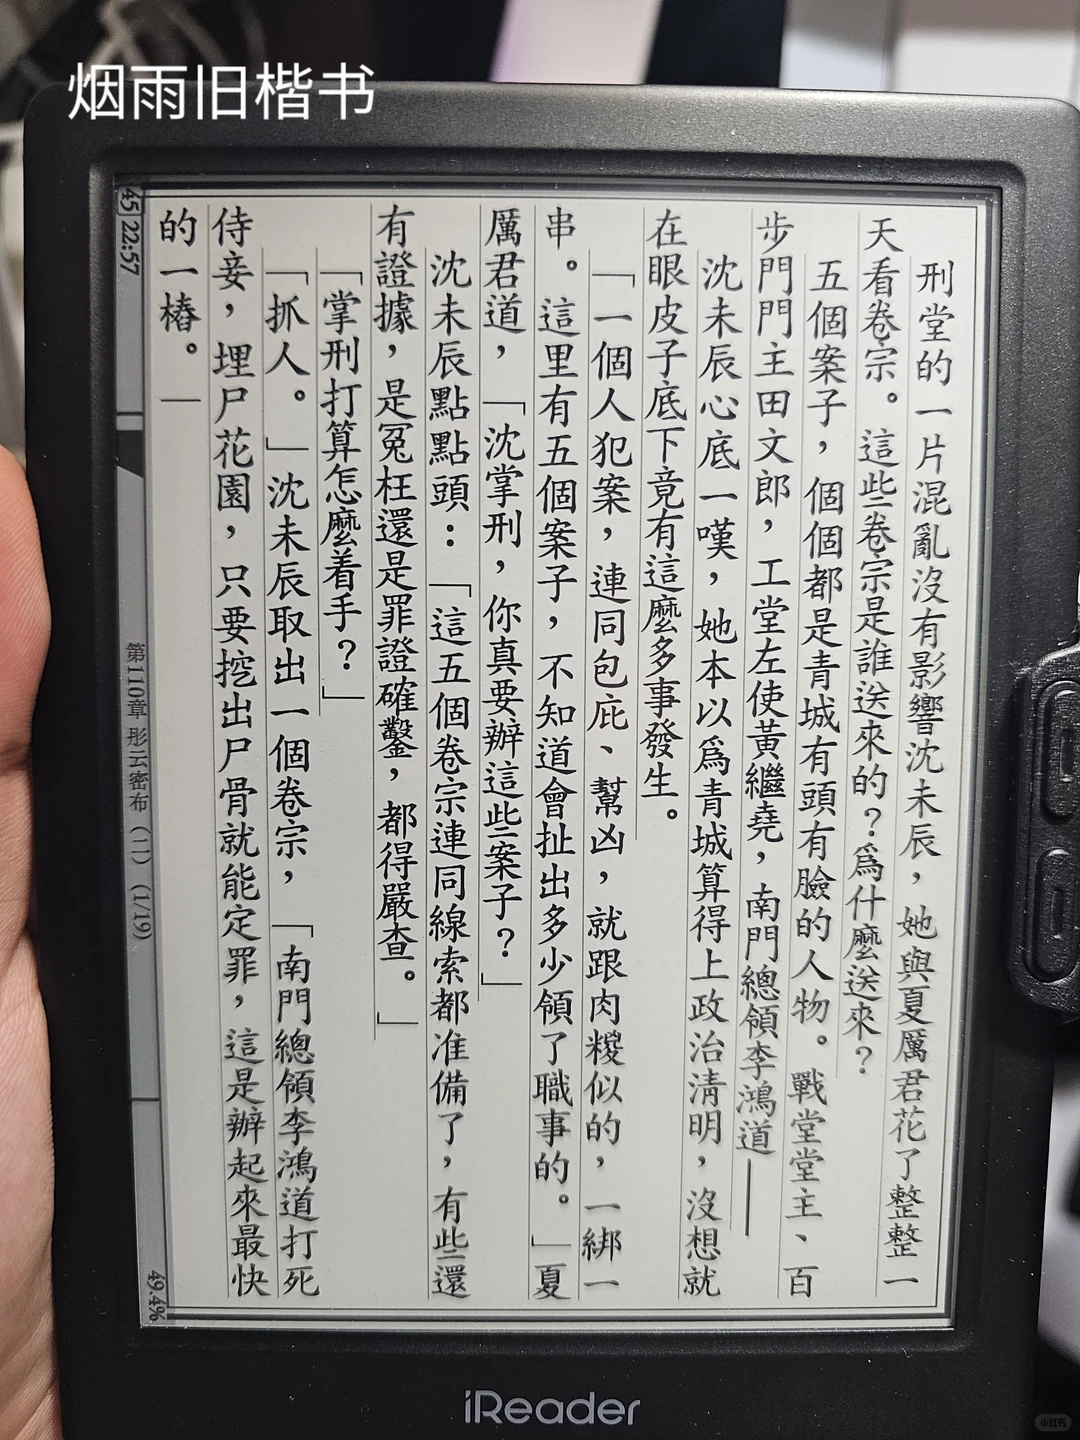 烟雨旧楷书
刑堂的一片混亂沒有影響沈未辰，她與夏厲君花了整整一
天看卷宗。這些卷宗是誰送來的？爲什麼送來？
五個案子，個個都是青城有頭有臉的人物。戰堂堂主、百
步門門主田文郎，工堂左使黃繼堯，南門總領李鴻道——
沈未辰心底一嘆，她本以爲青城算得上政治清明，沒想就
在眼皮子底下竟有這麼多事發生。
「一個人犯案，連同包庇、幫凶，就跟肉糉似的，一綁一
串。這里有五個案子，不知道會扯出多少領了職事的。」夏
厲君道，「沈掌刑，你真要辦這些案子？」
沈未辰點點頭：「這五個卷宗連同線索都准備了，有些還
有證據，是冤枉還是罪證確鑿，都得嚴查。」
「掌刑打算怎麼着手？」
「抓人。」沈未辰取出一個卷宗，「南門總領李鴻道打死
侍妾，埋尸花園，只要挖出尸骨就能定罪，這是辦起來最快
的一樁。」
45 22:57
第110章 彤云密布（二）（1/19）
49.4%
iReader
小红书